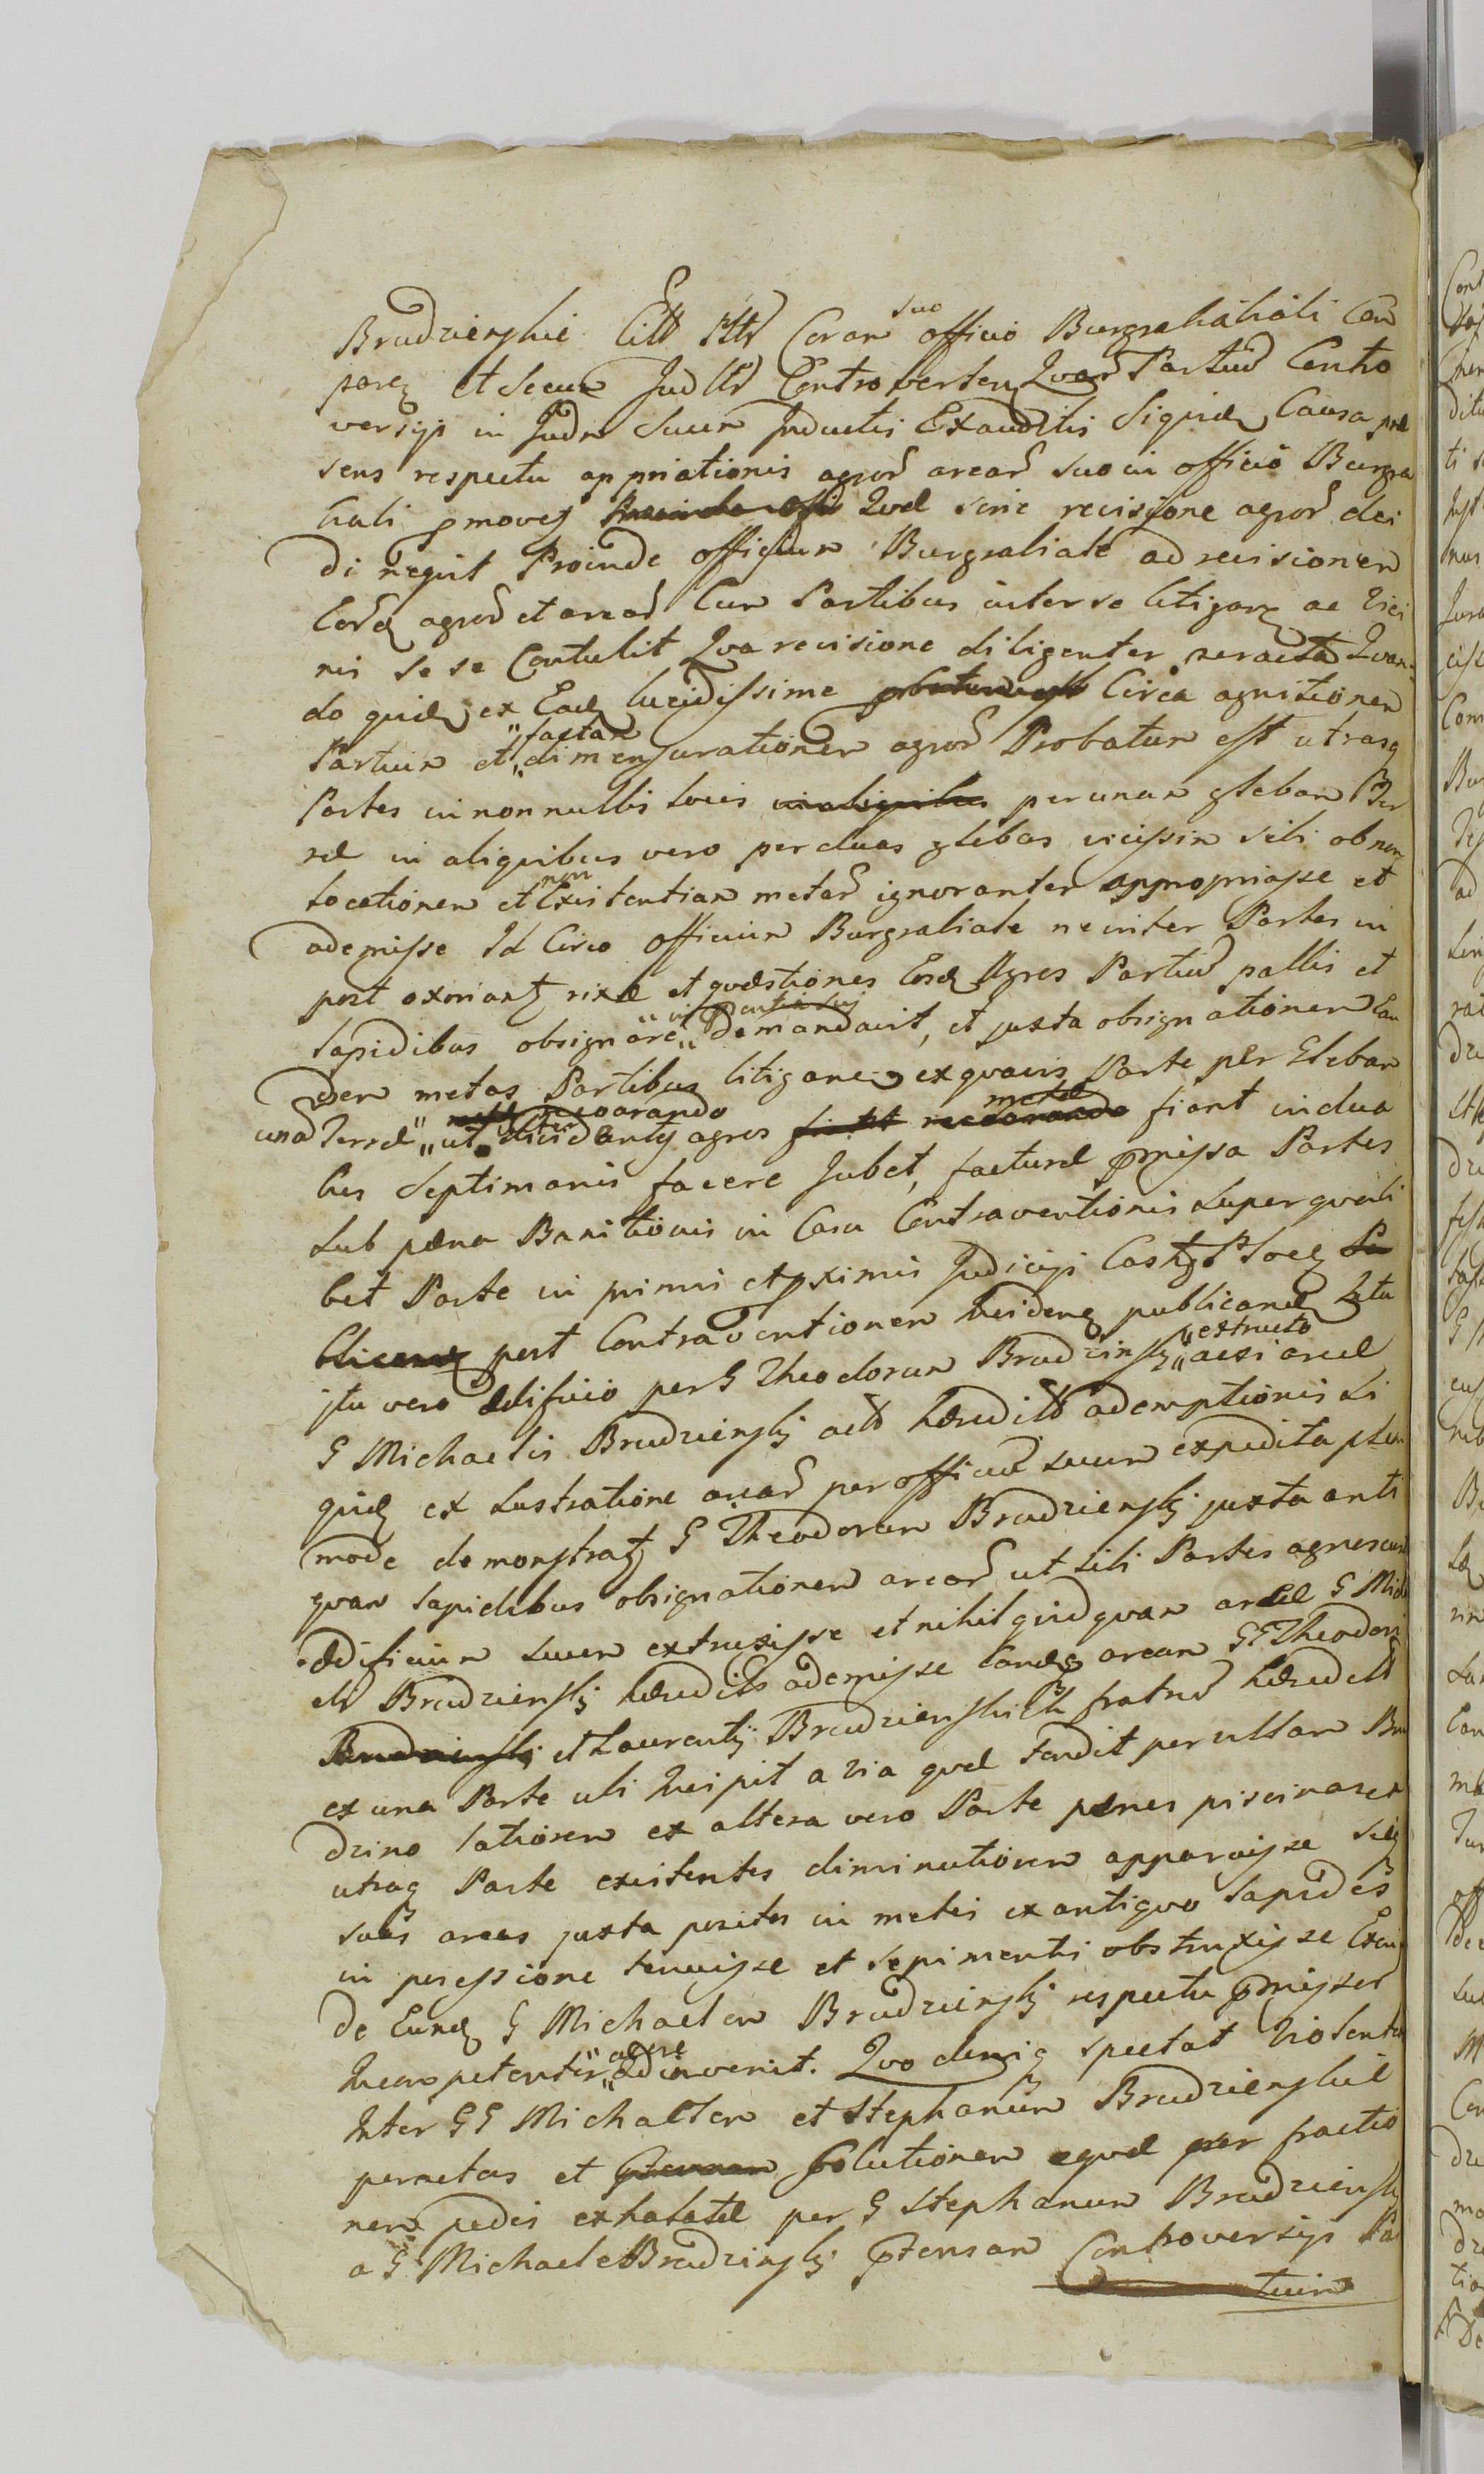 Brudzienskie Citt Ittd Coram suo officio Burgrabiali Com
paren et secum Judltr Controverten Quar Partiu Contro
versijs in Judm suum Inductis Exauditis Siquid Causa præ
sens respectu appriationis agror arear suo in officio Burgra
biali pmovet Quæ sine revisione agror deci
di nequit Proinde officium Burgrabiale ad revisionem
Eord agror et arear Cum Partibus inter se litigan ac Vici
nis se se Contulit Qua revisione diligenter peracta Quan
do quid ex Ead lucidissime Circa agnitionem
Partium et factam dimensurationem agror Probatum est utrasq
Partes in nonnullis locis in aliquibus per unam glebam Ter
ræ in aliquibus vero per duas glebas vicissim sibi ob non
locationem et non Existentiam metar ignoranter appropriasse et
ademisse Id Circo officium Burgrabiale ne inter Partes in
post oxoriant rixæ et quæstiones Eosd Agros Partiu pallis et
lapidibus obsignare demandavit, et juxta obsignationem Ean
dem metas Partibus litigan ex quavis Parte per Glebam
una Terræ ut agros metæ fiant in dua
bus Septimanis facere Jubet, facturæ pmissa Partes
sub pæna Banitionis in Casu Contraventionis super quali
bet Parte in primis et pximis Judicijs Cast
blicand post Contraventionem Incidend publicand Lata
jtu vero ædificio per G Theodorum Brudzinskj extructo acsi areæ
G Michaelis Brudzienskj actr hæredittr ademptionis Si
quid ex Lustratione arear per officiu suum expedita plen
mode demonstrat G Theodorum Brudzienskj juxta anti
quam lapidibus obsignationem arear ut sibi Partes agnoscunt
ædificium suum extruxisse et nihil quidquam areæ G Micha
elis Brudzienskj hæredits ademisse Eandq aream GG Theodori
Brudzienskj et Laurentij Brudzienskich fratru hæreditt
ex una Parte ubi Incipit a via quæ tendit per villam Bru
dzino latiorem ex altera vero Parte pænes piscinas ex
utraq Parte existentes diminutiorem apparuisse
suas areas juxta positos in metis ex antiquo lapides
in possessione tenuisse et sepimentis obstruxisse Exin
de Eund G Michaelem Brudzienskj respectu pmissor
Incompetenter agere adinvenit. Quo deniq spectat Violentias
Inter GG Michaelem et Stephanum Brudzienskie
perractas et solutionem equæ per fractio
nem pedis exhalatæ per G Stephanum Brudziensky
a G Michaele Brudzinskj ptensam Controversijs Par
tium